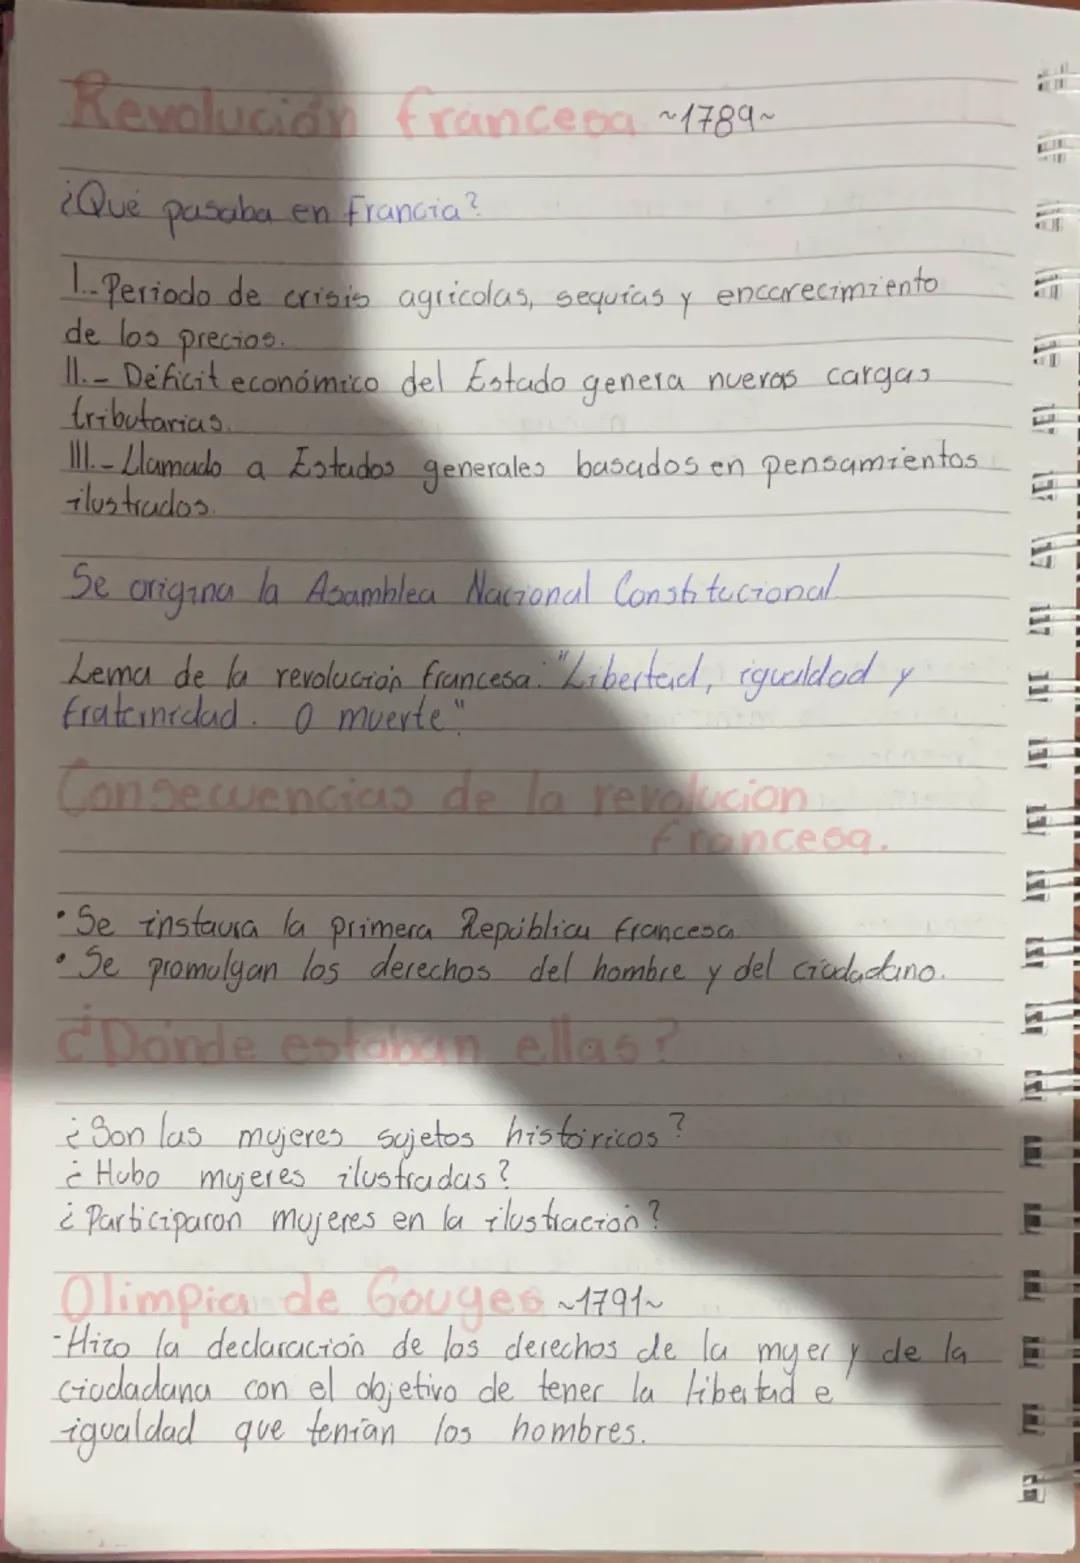 Revolución francesa ~1789~
¿Qué pasaba en francia?
I.-Periodo de crisis agrícolas, sequías y encarecimiento
de los precios.
II.- Déficit económico del Estado genera nuevas cargas
tributarias.
III.- Llamado a Estados generales basados en pensamientos
ilustrados.
Se origina la Asamblea Nacional Constitucional
Lema de la revolución francesa: "Libertad, igualdad y
fraternidad. O muerte"
Consecuencias de la revolucion
francesa.
• Se instaura la primera República francesa
• Se promulgan los derechos del hombre y del ciudadano.
¿Dónde estaban ellas?
¿Son las mujeres sujetos históricos?
¿Hubo mujeres ilustradas?
¿Participaron mujeres en la ilustración?
Olimpia de Gouges ~1791~
-Hizo la declaración de los derechos de la mujer y de la
ciudadana con el objetivo de tener la libertad e
igualdad que tenían los hombres.